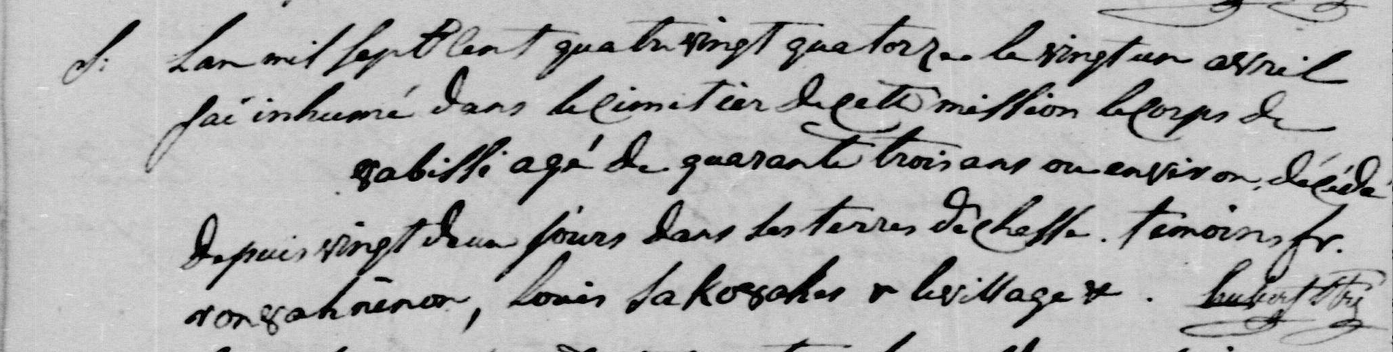 S. Lan mil sept Cent quatre vingt quatorze le vingt un avril
J'ai inhumé dans le Cimetier de Cette mission le Corps de
8abissi agé de quarante trois ans ou environ, décédé
depuis vingt deux jours dans les terres de Chasse. témoins fr.
ron8ahnenon, Louis Sako8akes & le village &.